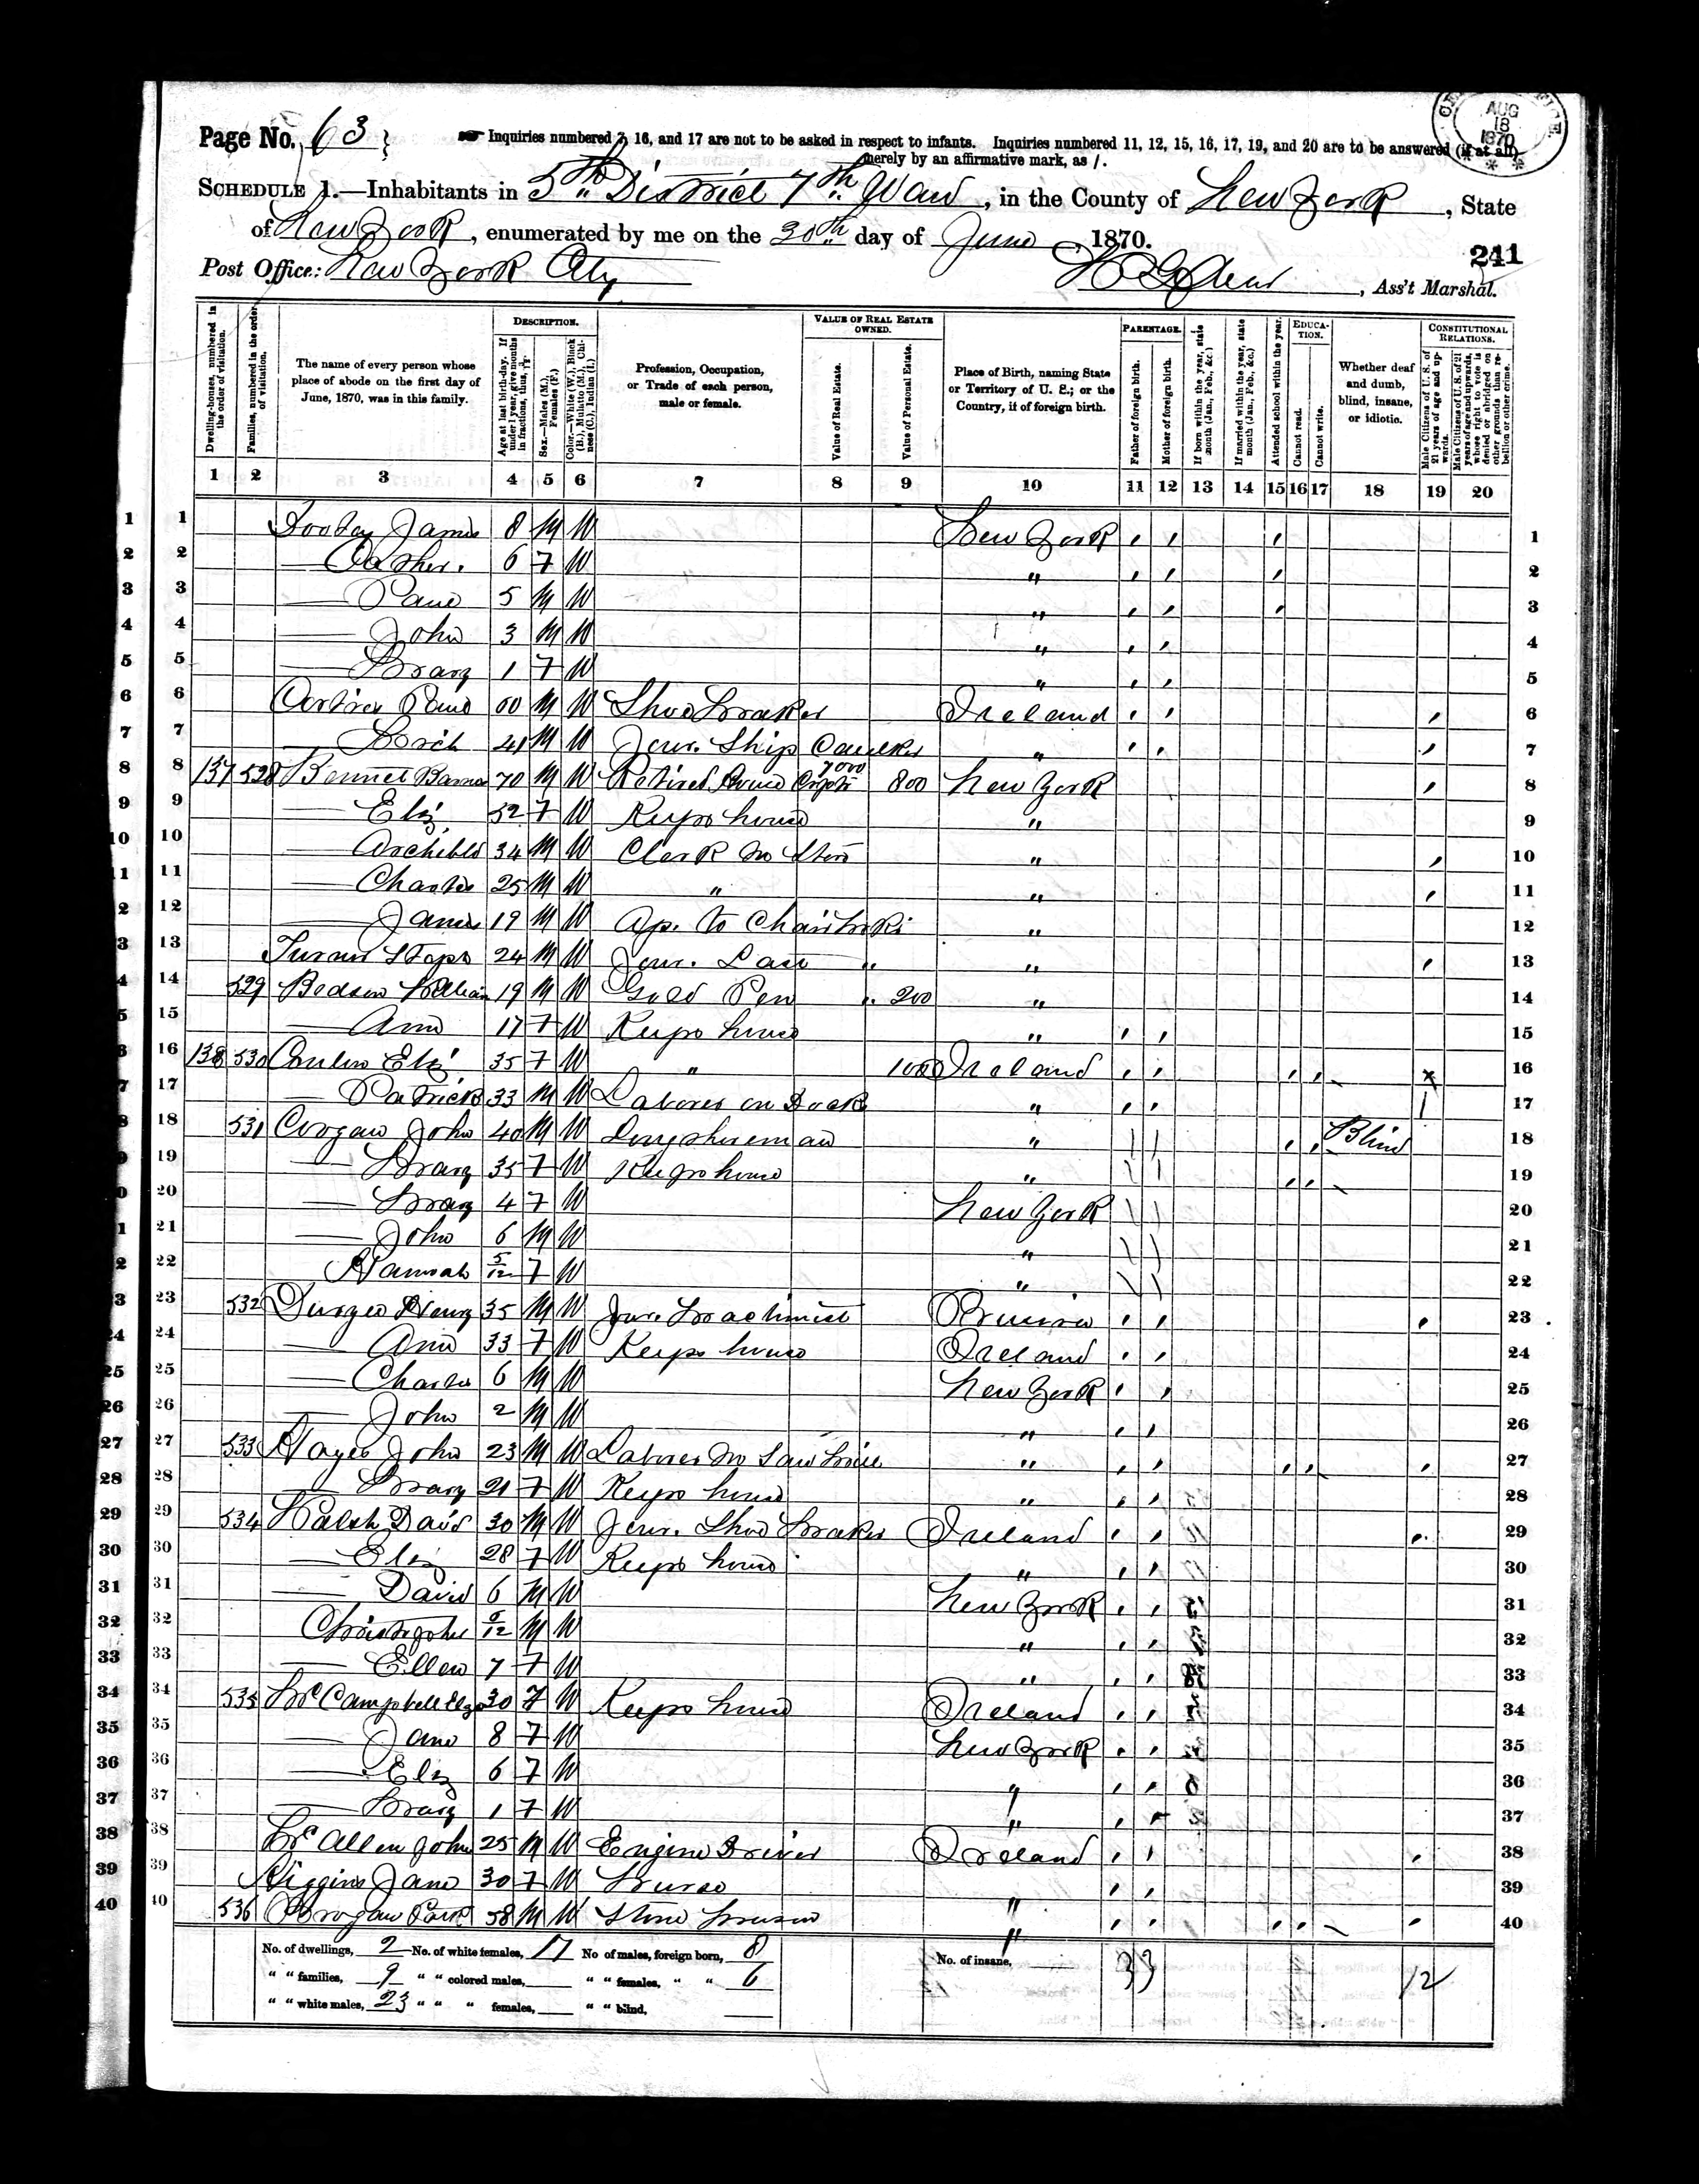 Page No. 63
Inquiries numbered 7, 16, and 17 are not to be asked in respect to infants. Inquiries numbered 11, 12, 15, 16, 17, 19, and 20 are to be answered (if at all)
merely by an affirmative mark, as /.
AUG
18
1870
SCHEDULE 1.—Inhabitants in 5th District 7th Ward, in the County of New York, State
of New York, enumerated by me on the 30th day of June, 1870.
241
Post Office: New York City
, Ass't Marshal.
Dwelling-houses, numbered in the order of visitation.
Families, numbered in the order of visitation.
The name of every person whose place of abode on the first day of June, 1870, was in this family.
DESCRIPTION.
Age at last birth-day. If under 1 year, give months in fractions, thus, 3/12.
Sex.—Males (M.), Females (F.)
Color.—White (W.), Black (B.), Mulatto (M.), Chinese (C.), Indian (I.)
Profession, Occupation, or Trade of each person, male or female.
VALUE OF REAL ESTATE OWNED.
Value of Real Estate.
Value of Personal Estate.
Place of Birth, naming State or Territory of U. S.; or the Country, if of foreign birth.
PARENTAGE.
Father of foreign birth.
Mother of foreign birth.
If born within the year, state month (Jan., Feb., &c.)
If married within the year, state month (Jan., Feb., &c.)
Attended school within the year.
EDUCATION.
Cannot read.
Cannot write.
Whether deaf and dumb, blind, insane, or idiotic.
CONSTITUTIONAL RELATIONS.
Male Citizens of U. S. of 21 years of age and upwards.
Male Citizens of U. S. of 21 years of age and upwards, whose right to vote is denied or abridged on other grounds than rebellion or other crime.
1 2 3 4 5 6 7 8 9 10 11 12 13 14 15 16 17 18 19 20
1 James 8 M W New York / / / 1
2 — 6 F W " / / / 2
3 — Paul 5 M W " / / / 3
4 — John 3 M W " / / 4
5 — Mary 1 F W " / / 5
6 Paul 60 M W Shoe Maker Ireland / / / 6
7 — 21 M W Jour. Ship Caulker " / / / 7
8 137 528 Bennet 70 M W Retired 7000 800 New York / 8
9 — Eliz 52 F W Keeps house " 9
10 — Archibld 34 M W Clerk in Store " / 10
11 — Charles 25 M W " " / 11
12 — James 19 M W Ap. to Chair Mkr " 12
13 24 M W Jour. " " / 13
14 529 William 19 M W Gold Pen " 200 " 14
15 — Ann 17 F W Keeps house " / / 15
16 138 530 Eliz 35 F W " 100 Ireland / / / / x 16
17 — Patrick 33 M W Laborer on Dock " / / / 17
18 531 Corgan John 40 M W Longshoreman " / / / / Blind 18
19 — Mary 35 F W Keeps house " / / / / 19
20 — Mary 4 F W New York / / 20
21 — John 6 M W " / / 21
22 Hannah 5/12 F W " / / 22
23 532 Henry 35 M W Jour. Machinist Prussia / / / 23
24 — Ann 33 F W Keeps house Ireland / / 24
25 — Charles 6 M W New York / / 25
26 — John 2 M W " / / 26
27 533 Hayes John 23 M W Laborer in Saw Mill " / / / / / 27
28 — Mary 21 F W Keeps house " / / 28
29 534 Walsh David 30 M W Jour. Shoe Maker Ireland / / / 29
30 — Eliz 28 F W Keeps house " / / 30
31 — David 6 M W New York / / 31
32 Christopher 9/12 M W " / / 32
33 — Ellen 7 F W " / / 33
34 535 McCampbell Eliz 30 F W Keeps house Ireland / / 34
35 — Jane 8 F W New York / / 35
36 — Eliz 6 F W " / / 36
37 — Mary 1 F W " / / 37
38 McAllen John 25 M W Engine Driver Ireland / / / 38
39 Higgins Jane 30 F W Nurse " / / 39
40 536 Brogan Patk 58 M W Stone Mason " / / / / / 40
No. of dwellings, 2 No. of white females, 17 No of males, foreign born, 8 No. of insane, 33 12
" " families, 9 " " colored males, " " females, " " 6
" " white males, 23 " " " females, " " blind,